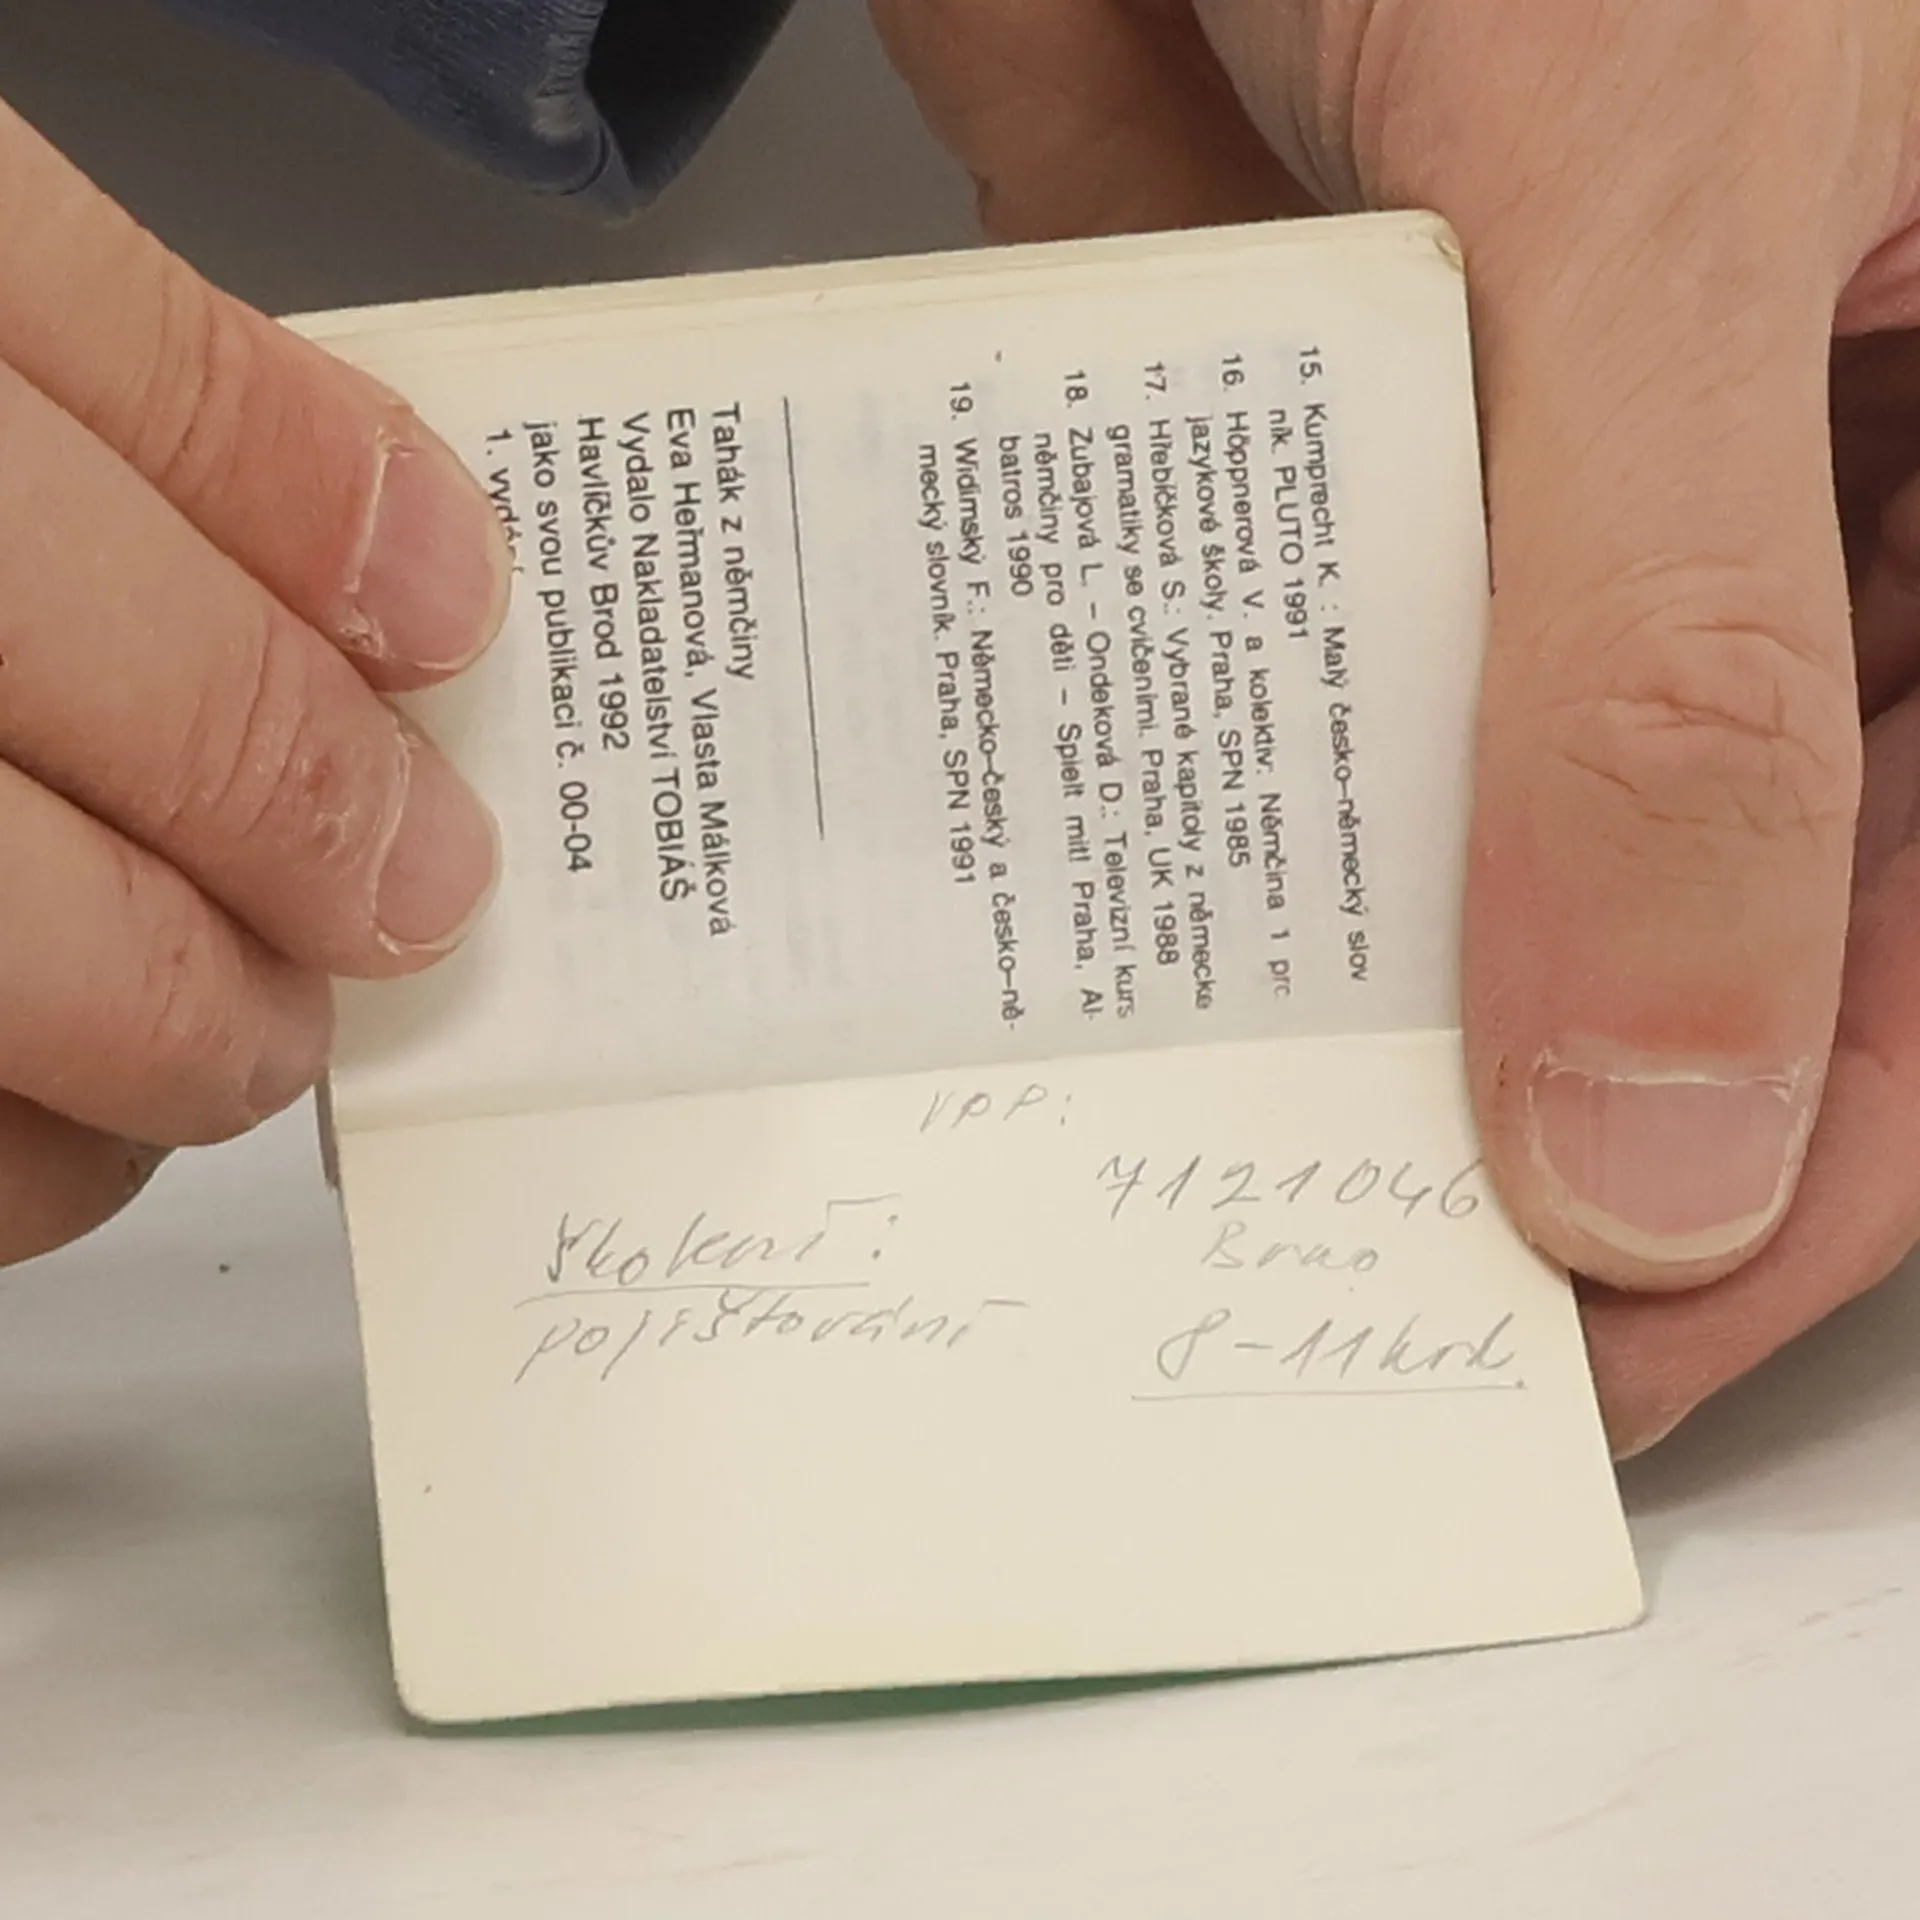 15. Kumprecht K. : Malý česko–německý slov
ník. PLUTO 1991
16. Höppnerová V. a kolektiv: Němčina 1 pro
jazykové školy. Praha, SPN 1985
17. Hřebíčková S.: Vybrané kapitoly z německe
gramatiky se cvičeními. Praha, UK 1988
18. Zubajová L. – Ondeková D.: Televizní kurs
němčiny pro děti – Spielt mit! Praha, Al-
batros 1990
19. Widimský F.: Německo–český a česko–ně-
mecký slovník. Praha, SPN 1991
Tahák z němčiny
Eva Heřmanová, Vlasta Málková
Vydalo Nakladatelství TOBIÁŠ
Havlíčkův Brod 1992
jako svou publikaci č. 00-04
1.
VPP:
7121046
Brno
8–11 hod.
školení:
pojišťování